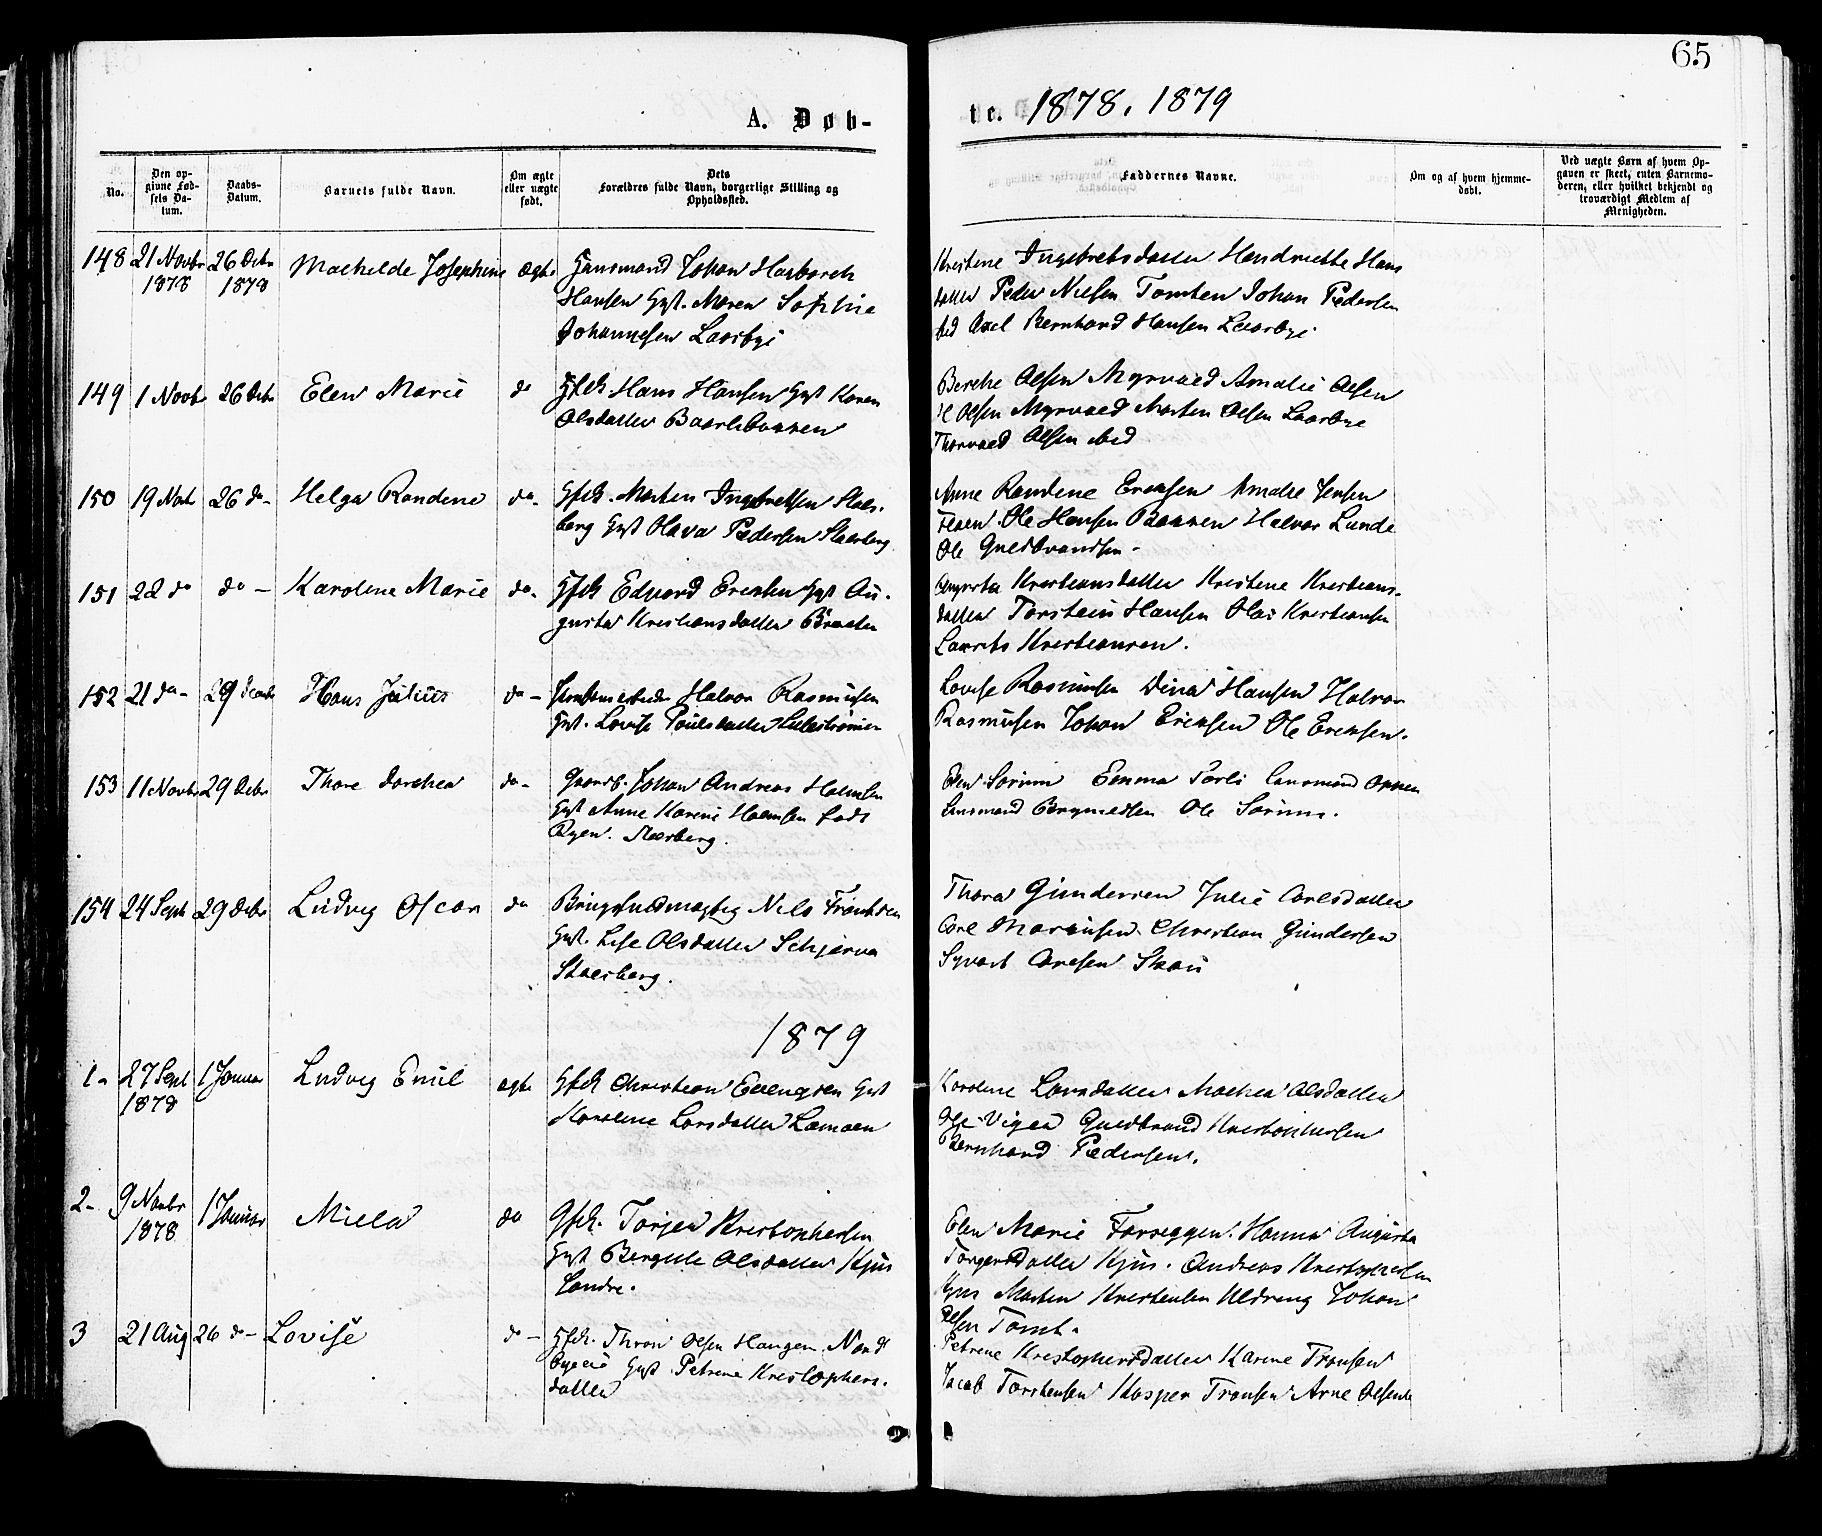 65
A. Døb-
te. 1878. 1879
No.
Den op-
givne Fød-
sels Da-
tum.
Daabs-
Datum.
Barnets fulde Navn.
Om ægte
eller uægte
født.
Dets
Forældres fulde Navn, borgerlige Stilling og
Opholdssted.
Faddernes Navne.
Om og af hvem hjemme-
døbt.
Ved uægte Børn af hvem Op-
gaven er skeet, enten Barnemo-
deren, eller hvilket bekjendt og
troværdigt Medlem af
Menigheden.
148 21 Novbr 26 Debr Mathilde Josephine ægte Huusmand Johan Hasbarth
1878 1878 Hansen Gust. Maren Sophie
Johannesen Laasbye
Kristine Ingebretsdatter Hendriette Hans
datter Peder Nielsen Tomten Johan Pedersen
ibd Axel Bernhard Hansen Laasbye
149 1 Novbr 26 Debr Elen Marie do Gfsk. Hans Hansen Gust Karen
Olsdatter
Berthe Olsen Myrvold Amalie Olsen
Olsen Myrvold Morten Olsen Laasbye
Thorvald Olsen ibid
150 19 Novb 26 do - Helga Randine do - Gfsk. Morten Ingebretsen Staas-
berg Gust Olava Pedersen Staasberg
Anne Randine Eriksen Amalie Jensen
Ole Hansen Bakken Halvor Lunde
Ole Guldbrandsen -
151 22 do do - Karoline Marie do - Gfsk Edvard Eriksen Gust Au-
gusta Kristiansdatter Braaten
Augusta Kristiansdatter Kristine Kristians-
datter Torstein Hansen Olai Kristiansen
Laurits Kristiansen.
152 21 do - 29 Decbr Hans Julius do - Halvor Rasmusen
Gust. Lovise Poulsdatter
Lovise Rasmusen Dina Hansen Halvor
Rasmusen Johan Eriksen Ole Eriksen.
153 11 Novbr 29 Debr Thore Dorthea do - Gaardb. Johan Andreas Holmsen
Gust Anne Karine Holmsen født
Ryen. Staasberg.
Elen Sørum Emma Torli Lensmand
Lensmand Ole Sørum.
154 24 Sept 29 Debr Ludvig Oscar do Brugsfuldmægtig Nils Frantsen
Gust. Lise Olsdatter Schjerva
Staasberg.
Thora Gundersen Julie Carlsdatter
Carl Mariusen Christian Gundersen
Syvert Carlsen Skau
1879
1 - 27 Sept 1 Januar Ludvig Emil ægte Gfsk Christian Evengsen Gust
1878 Karoline Larsdatter Lamoen
Karoline Larsdatter Mathea Olsdatter
Guldbrand Kristophersen
Bernhard Pedersen.
2 - 9 Novbr 1 Januar Milla do Gfsk. Torjer Kristophersen
1878 Gust Bergitte Olsdatter Kjus
Søndre.
Elen Marie Forseggen. Hanna Augusta
Torgersdatter Kjus. Andreas Kristophersen
Kjus Morten Kristensen Uldreng Johan
Olsen Tomt.
3 21 Aug 26 do - Lovise do - Gfsk. Thron Olsen Haugen Nord
byeie Gust Petrine Kristophers-
datter
Petrine Kristophersdatter Karine Tronsen
Jacob Torstensen Kasper Tronsen Arne Olsen